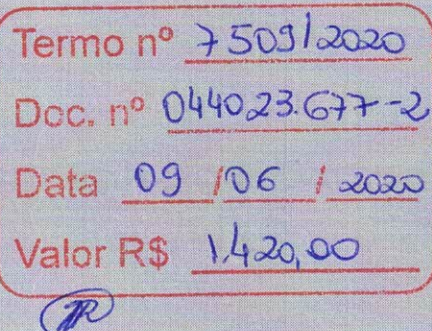 Termo nº 7509/2020
Doc. nº 044023.677-2
Data 09 / 06 / 2020
Valor R$ 1.420,00